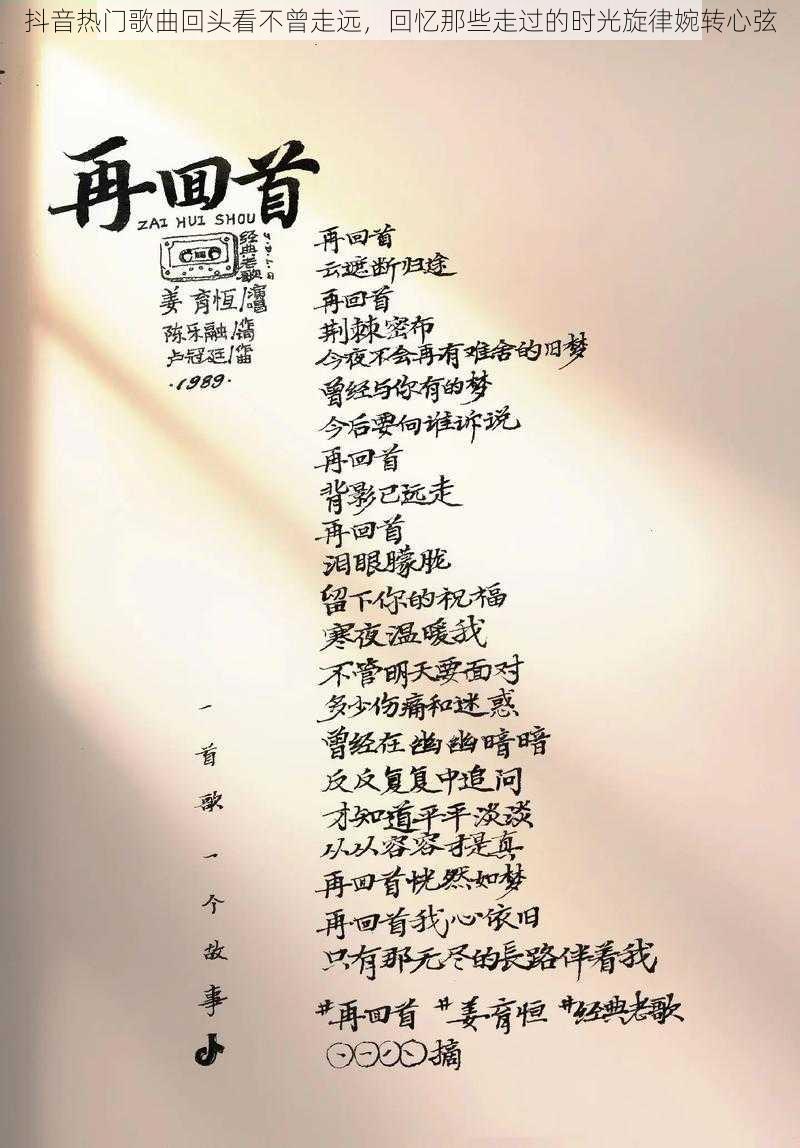 抖音热门歌曲回头看不曾走远，回忆那些走过的时光旋律婉转心弦
再回首
ZAI HUI SHOU
经典老歌
姜育恒/演唱
陈乐融/作词
卢冠廷/作曲
·1989·
再回首
云遮断归途
再回首
荆棘密布
今夜不会再有难舍的旧梦
曾经与你有的梦
今后要向谁诉说
再回首
背影已远走
再回首
泪眼朦胧
留下你的祝福
寒夜温暖我
不管明天要面对
多少伤痛和迷惑
曾经在幽幽暗暗
反反复复中追问
才知道平平淡淡
从从容容才是真
再回首恍然如梦
再回首我心依旧
只有那无尽的長路伴着我
#再回首 #姜育恒 #经典老歌
摘
一首歌一个故事